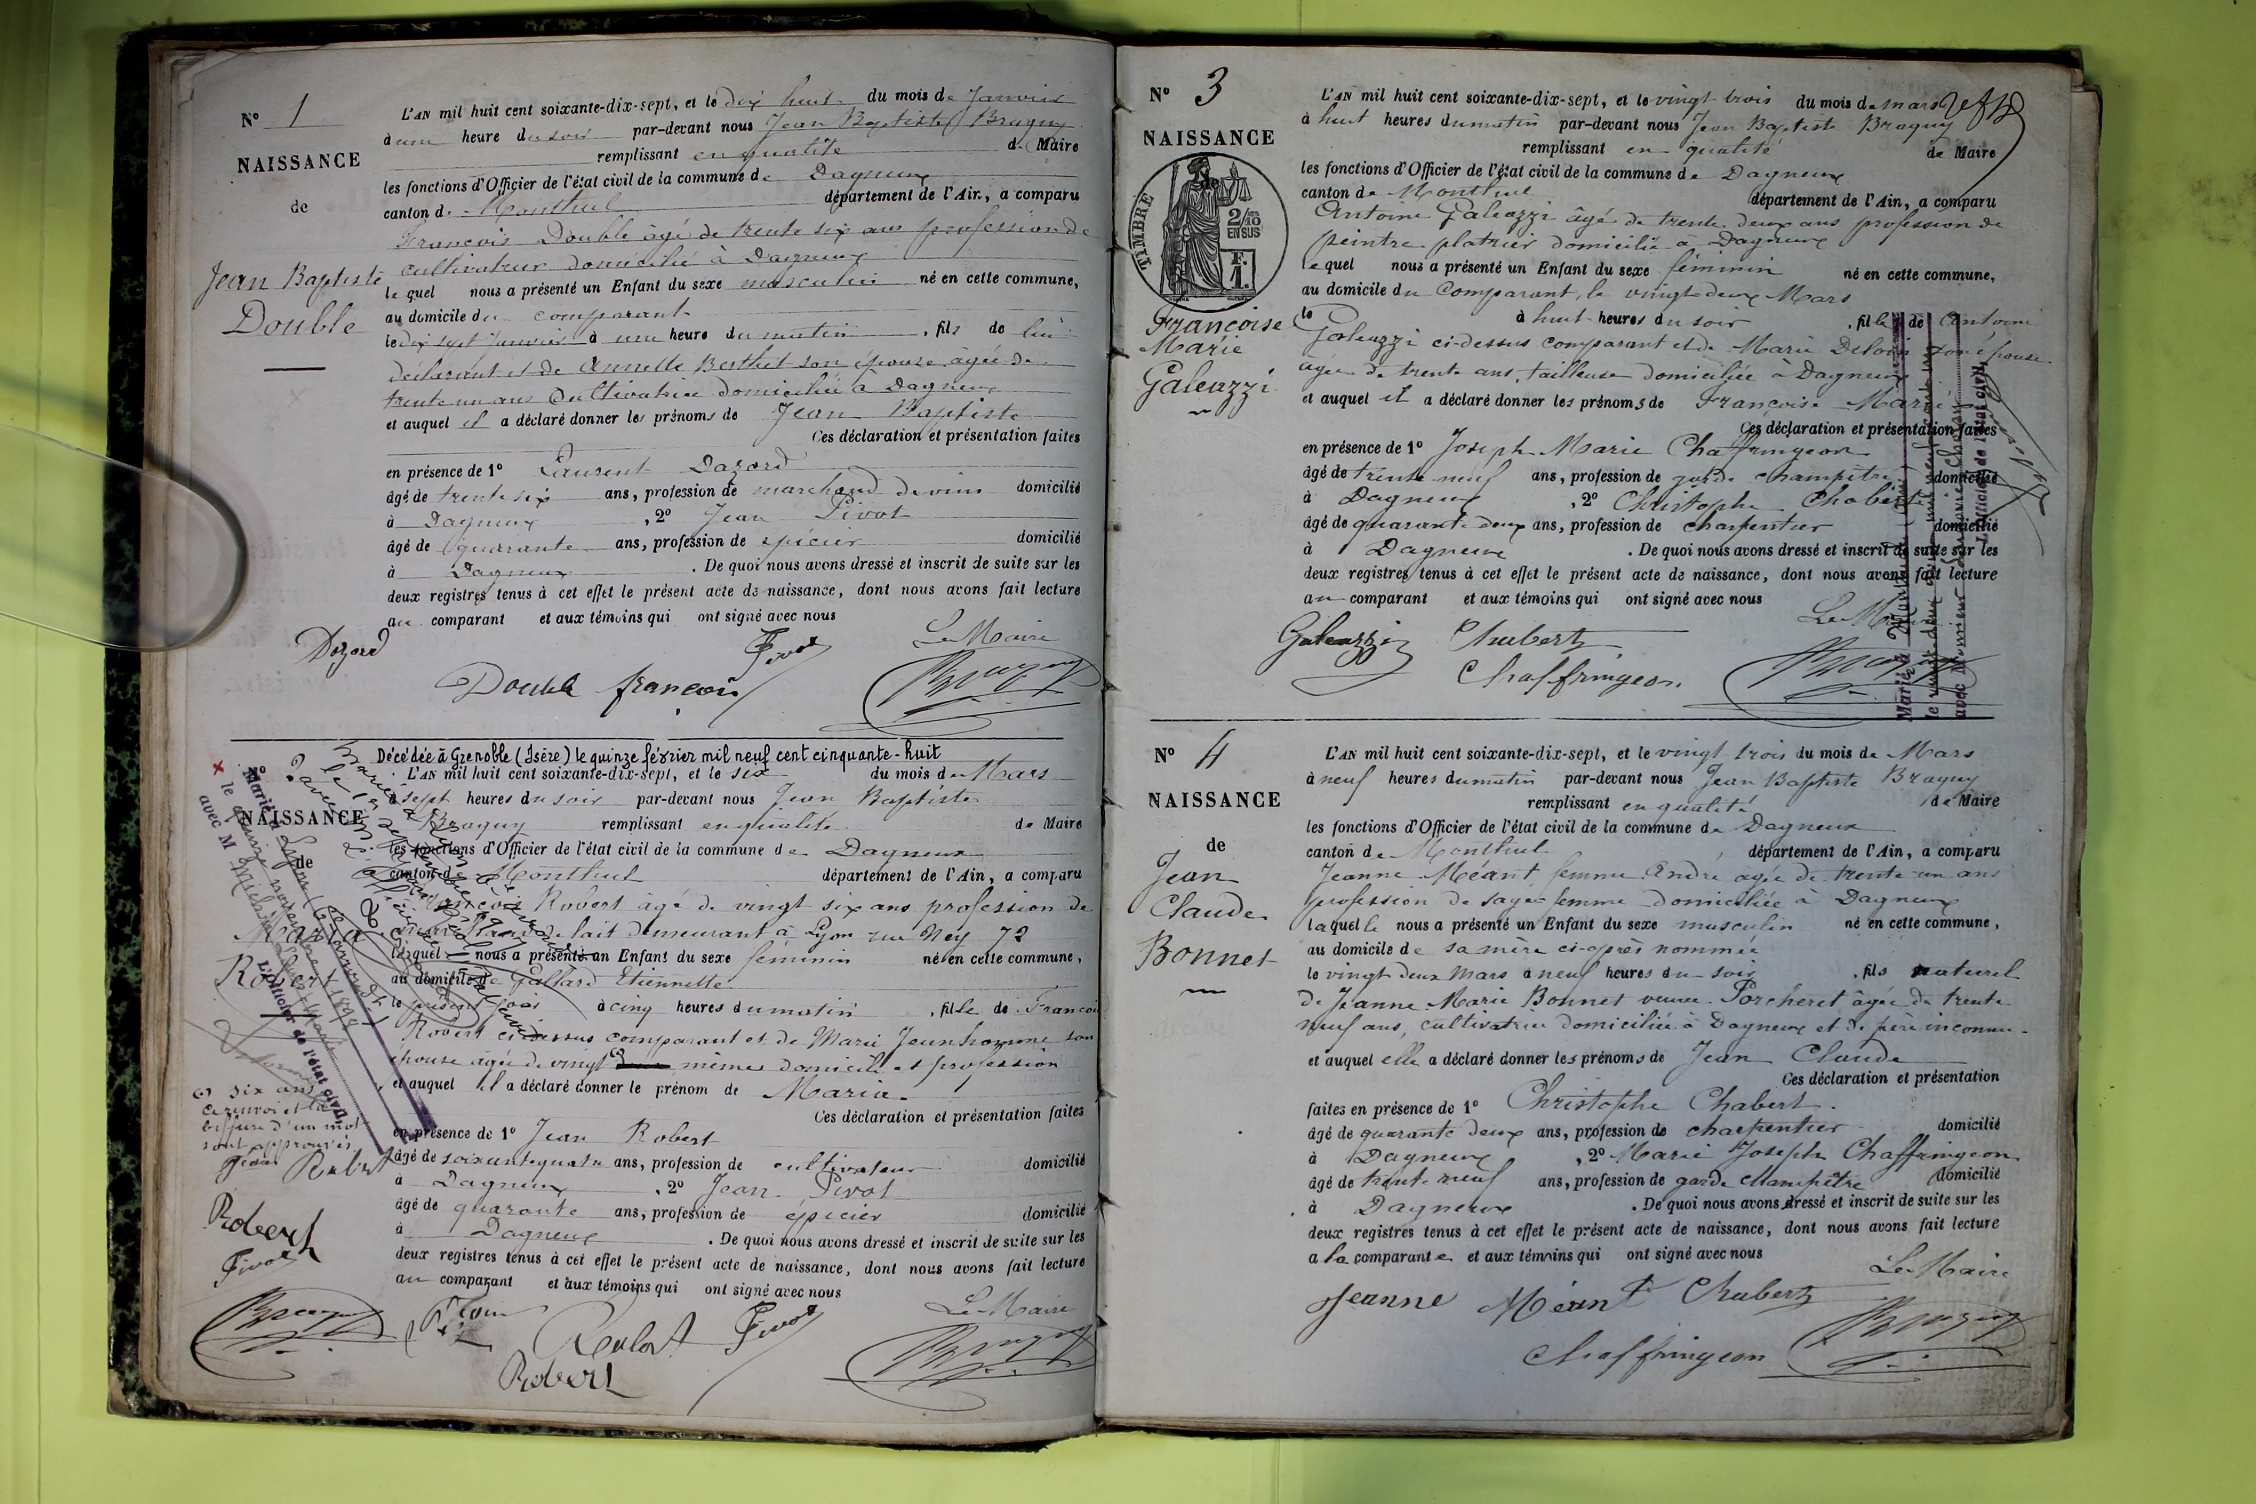 N° 1
NAISSANCE
de
Jean Baptiste
Double
L'AN mil huit cent soixante-dix-sept, et le dix huit du mois de Janvier
à une heure du soir par-devant nous Jean Baptiste Braguy
remplissant en qualité de Maire
les fonctions d'Officier de l'état civil de la commune de Dagneux
canton de Montluel département de l'Ain, a comparu
Francois Double âgé de trente six ans profession de
cultivateur domicilié à Dagneux
le quel nous a présenté un Enfant du sexe masculin né en cette commune,
au domicile du comparant
le dix sept Janvier à une heure du matin, fils de lui
déclarant et de Annette Berthet son épouse âgée de
trente un ans Cultivatrice domiciliée à Dagneux
et auquel il a déclaré donner les prénoms de Jean Baptiste
Ces déclaration et présentation faites
en présence de 1° Laurent Dazord
âgé de trente six ans, profession de marchand de vins domicilié
à Dagneux, 2° Jean Pivot
âgé de quarante ans, profession de épicier domicilié
à Dagneux. De quoi nous avons dressé et inscrit de suite sur les
deux registres tenus à cet effet le présent acte de naissance, dont nous avons fait lecture
au comparant et aux témoins qui ont signé avec nous
Le Maire
Dozord Pivot
Double françois
Décédée à Grenoble (Isère) le quinze février mil neuf cent cinquante-huit
N° 2
NAISSANCE
de
Maria
Robert
L'AN mil huit cent soixante-dix-sept, et le six du mois de Mars
à sept heures du soir par-devant nous Jean Baptiste
Braguy remplissant en qualité de Maire
les fonctions d'Officier de l'état civil de la commune de Dagneux
canton de Montluel département de l'Ain, a comparu
François Robert âgé de vingt six ans profession de
marchand de lait demeurant à Lyon rue Ney 72
lequel nous a présenté un Enfant du sexe féminin né en cette commune,
au domicile de Gallard Etiennette
le présent jour à cinq heures du matin, fille de Francois
Robert ci-dessus comparant et de Marie Jeunhomme son
épouse âgée de vingt même domicile et profession
et auquel il a déclaré donner le prénom de Maria.
Ces déclaration et présentation faites
en présence de 1° Jean Robert
âgé de soixante quatre ans, profession de cultivateur domicilié
à Dagneux, 2° Jean Pivot
âgé de quarante ans, profession de épicier domicilié
à Dagneux. De quoi nous avons dressé et inscrit de suite sur les
deux registres tenus à cet effet le présent acte de naissance, dont nous avons fait lecture
au comparant et aux témoins qui ont signé avec nous
Le Maire
Marié à Lyon
avec M
L'Officier de l'état civil,
six ans
ce renvoi et la
biffure d'un mot
sont approuvés
Jean Robert
Robert
Pivot
Robert Pivot
Robert
N° 3
NAISSANCE
TIMBRE
2/10 EN SUS
F. 1.
Françoise
Marie
Galeazzi
L'AN mil huit cent soixante-dix-sept, et le vingt trois du mois de mars
à huit heures du matin par-devant nous Jean Baptiste Braguy
remplissant en qualité de Maire
les fonctions d'Officier de l'état civil de la commune de Dagneux
canton de Montluel département de l'Ain, a comparu
Antoine Galeazzi âgé de trente deux ans profession de
peintre platrier domicilié à Dagneux
lequel nous a présenté un Enfant du sexe féminin né en cette commune,
au domicile du Comparant, le vingt deux Mars
le à huit heures du soir, fille de Antoine
Galeazzi ci-dessus comparant et de Marie son épouse
âgée de trente ans, tailleuse domiciliée à Dagneux
et auquel il a déclaré donner les prénoms de Françoise Marie
Ces déclaration et présentation faites
en présence de 1° Joseph Marie Chaffringeon
âgé de trente neuf ans, profession de garde champêtre domicilié
à Dagneux, 2° Christophe Chabert
âgé de quarante deux ans, profession de charpentier domicilié
à Dagneux. De quoi nous avons dressé et inscrit de suite sur les
deux registres tenus à cet effet le présent acte de naissance, dont nous avons fait lecture
au comparant et aux témoins qui ont signé avec nous
Le Maire
Galeazzi Chabert
Chaffringeon
Marié à Montluel
le vingt deux
avec Monsieur
L'Officier de l'état civil,
N° 4
NAISSANCE
de
Jean
Claude
Bonnet
L'AN mil huit cent soixante-dix-sept, et le vingt trois du mois de Mars
à neuf heures du matin par-devant nous Jean Baptiste Braguy
remplissant en qualité de Maire
les fonctions d'Officier de l'état civil de la commune de Dagneux
canton de Montluel département de l'Ain, a comparu
Jeanne Méant femme André âgée de trente un ans
profession de sage femme domiciliée à Dagneux
laquelle nous a présenté un Enfant du sexe masculin né en cette commune,
au domicile de sa mère ci-après nommée
le vingt deux Mars à neuf heures du soir, fils naturel
de Jeanne Marie Bonnet veuve Porcheret âgée de trente
neuf ans, cultivatrice domiciliée à Dagneux et de père inconnu.
et auquel elle a déclaré donner les prénoms de Jean Claude
Ces déclaration et présentation
faites en présence de 1° Christophe Chabert.
âgé de quarante deux ans, profession de charpentier domicilié
à Dagneux, 2° Marie Joseph Chaffringeon
âgé de trente neuf ans, profession de garde champêtre domicilié
à Dagneux. De quoi nous avons dressé et inscrit de suite sur les
deux registres tenus à cet effet le présent acte de naissance, dont nous avons fait lecture
a la comparante et aux témoins qui ont signé avec nous
Le Maire
Jeanne Méant Chabert
Chaffringeon